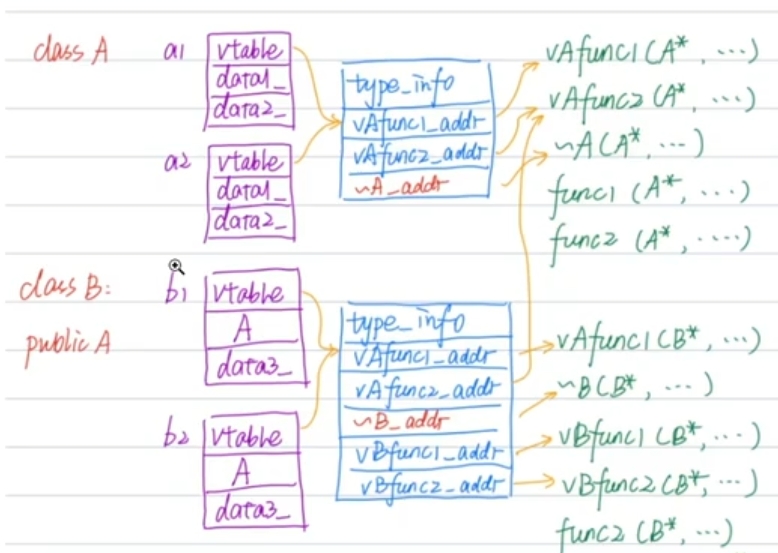 class A
a1
vtable
data1_
data2_
a2
vtable
data1_
data2_
type_info
vAfunc1_addr
vAfunc2_addr
~A_addr
vAfunc1 (A*, ...)
vAfunc2 (A*, ...)
~A (A*, ...)
func1 (A*, ....)
func2 (A*, ....)
class B:
public A
b1
vtable
A
data3_
b2
vtable
A
data3_
type_info
vAfunc1_addr
vAfunc2_addr
~B_addr
vBfunc1_addr
vBfunc2_addr
vAfunc1 (B*, ...)
~B (B*, ...)
vBfunc1 (B*, ...)
vBfunc2 (B*, ...)
func2 (B*, ...)